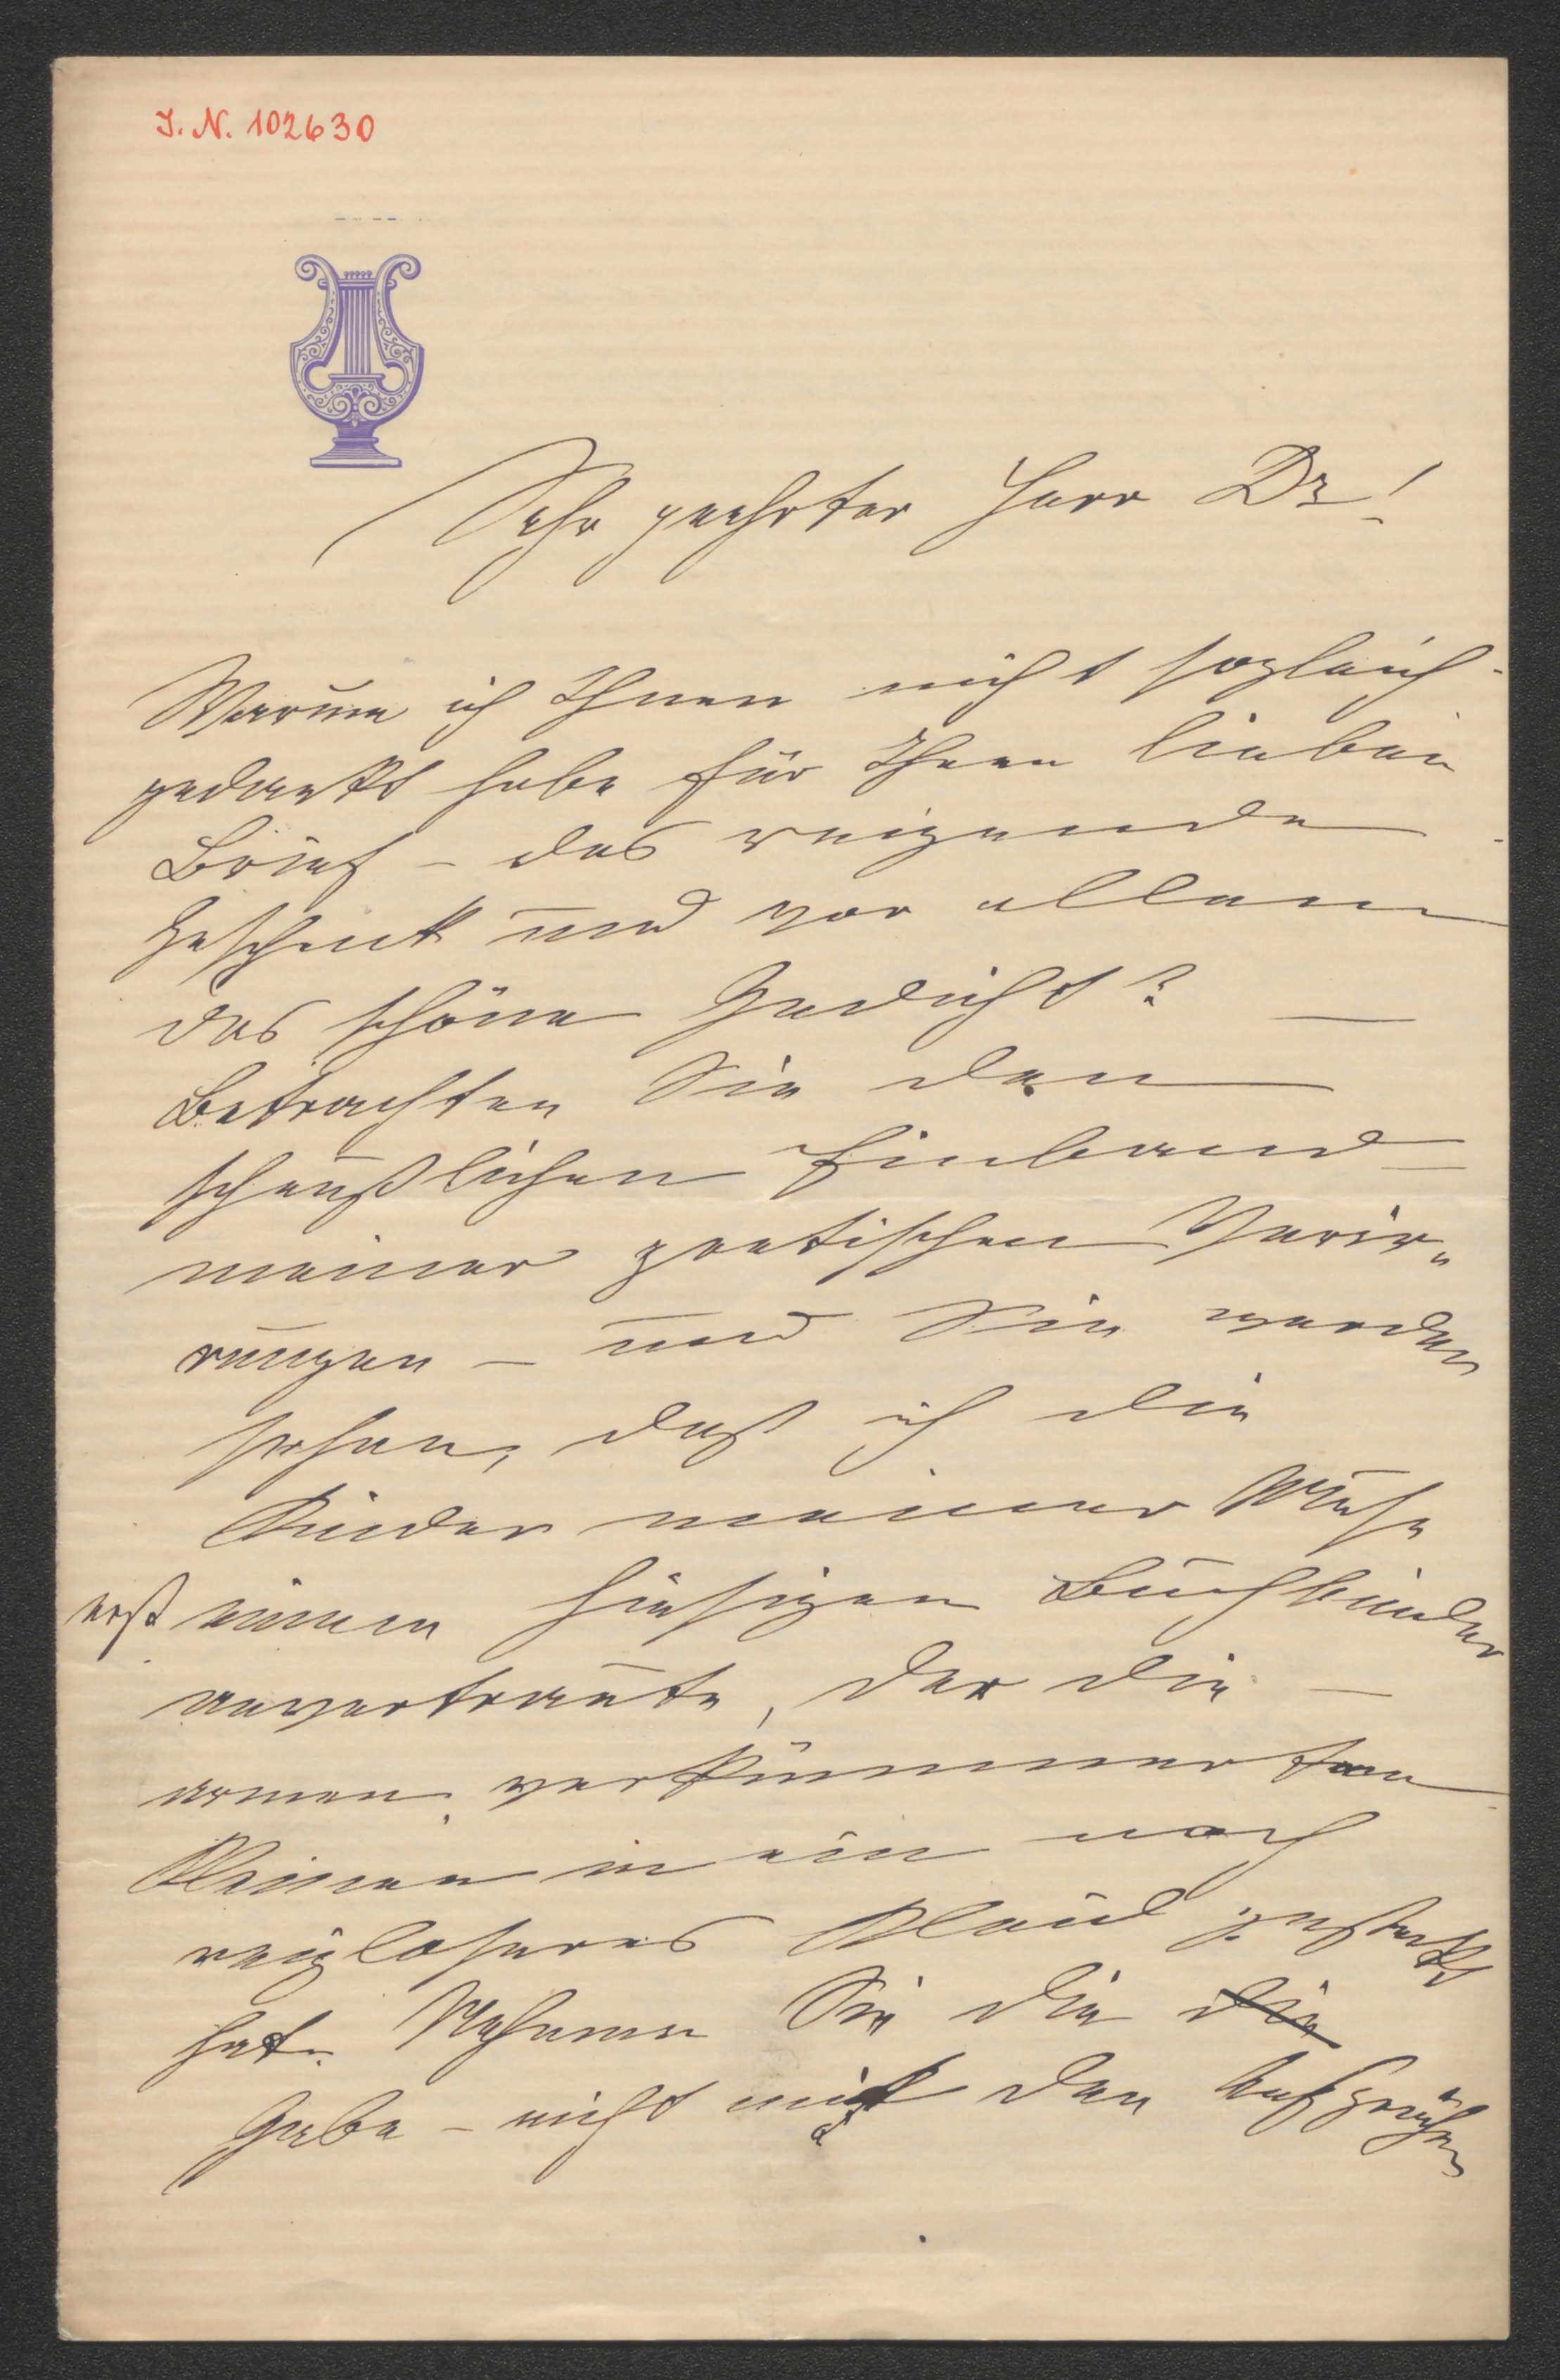 J. N. 102630
Sehr geehrter Herr Dr!
Warum ich Ihnen nicht sogleich
gedankt habe für Ihren lieben
Brief – das reizende
Geschenk und vor allem
das schöne Gedicht? —
Betrachten Sie den
scheußlichen Einband
meiner poetischen Verir-
rungen – und Sie werden
sehen, daß ich die
Kinder meiner Muse
erst einem hiesigen Buchbinder
anvertraute, der die –
armen verkümmerten
Kleinen in ein noch
reizloseres Kleid gesteckt
hat. Nehmen Sie die die
Gabe – nicht mit den